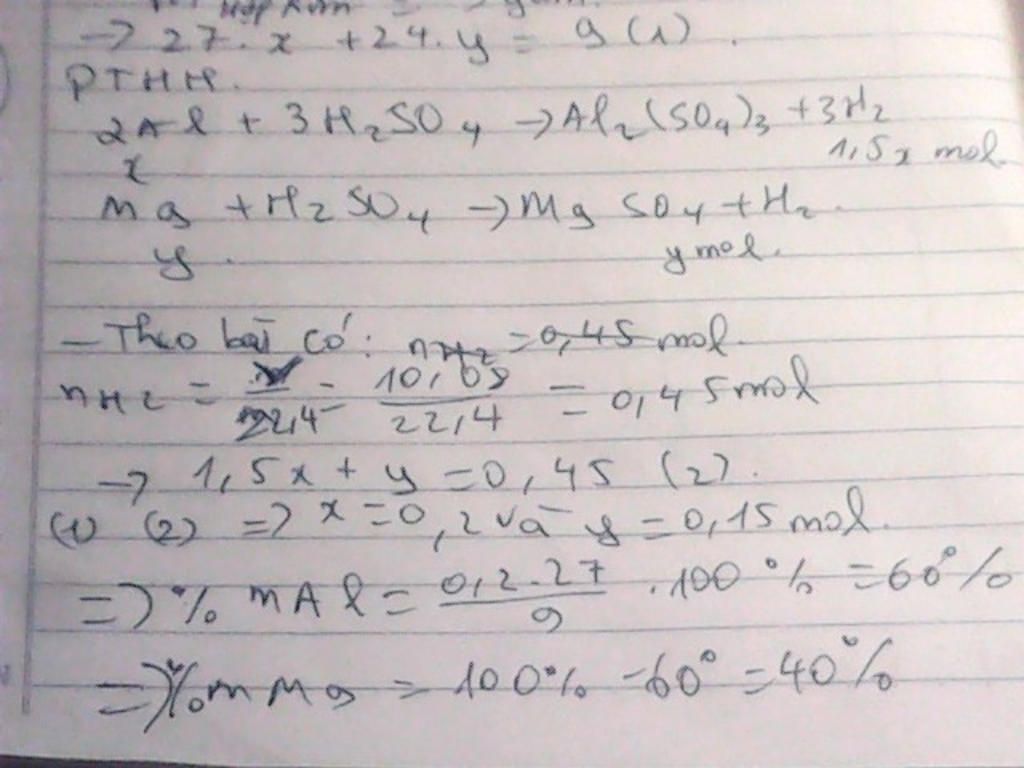 hợp kim =
→ 27.x + 24.y = 9 (1).
PTHH.
2Al + 3H₂SO₄ → Al₂(SO₄)₃ + 3H₂
x 1,5x mol
Mg + H₂SO₄ → MgSO₄ + H₂.
y. y mol.
- Theo bài có: nH₂ = 0,45 mol.
nH₂ = V/22,4 = 10,08/22,4 = 0,45 mol
→ 1,5x + y = 0,45 (2).
(1) (2) => x = 0,2 và y = 0,15 mol.
=> % mAl = 0,2.27/9 .100 % = 60%
=> %mMg = 100% - 60° = 40%